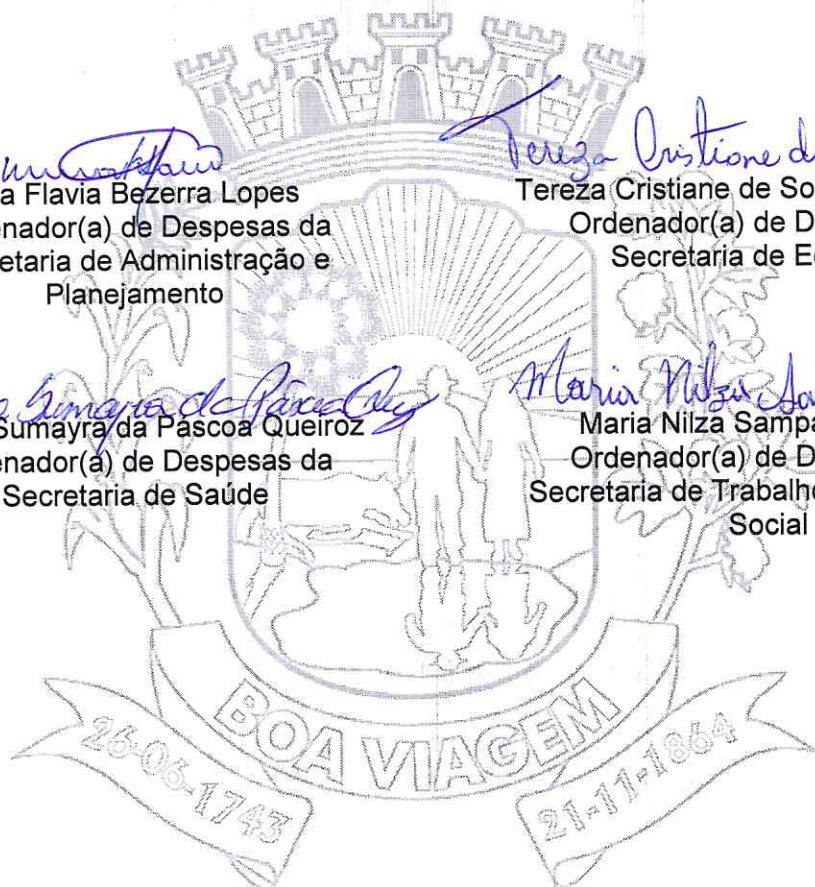 Tereza Cristiane d
a Flavia Bezerra Lopes
enador(a) de Despesas da
etaria de Administração e
Planejamento
Tereza Cristiane de So
Ordenador(a) de D
Secretaria de E
Sumayra da Páscoa Queiroz
Maria Nilza
Sumayra da Páscoa Queiroz
enador(a) de Despesas da
Secretaria de Saúde
Maria Nilza Sampa
Ordenador(a) de D
Secretaria de Trabalho
Social
BOA VIAGEM
26-06-1743
21-11-1864